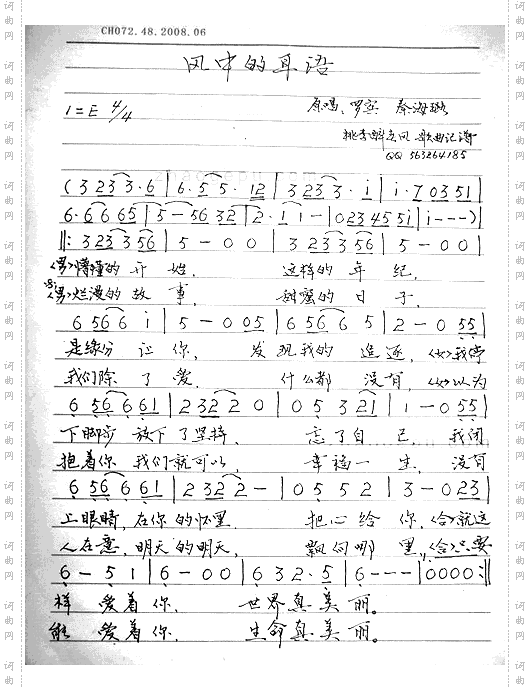 CH072.48.2008.06
风中的耳语
1=E 4/4
原唱、罗宾 秦海璐
桃李醉春风 歌曲记谱
QQ 563264185
(3 2 3 3 · 6 | 6 · 5 5 · 1 2 | 3 2 3 3 · i | i · 7 0 3 5 1 |
6 · 6 6 6 5 | 5 – 5 6 3 2 | 2 · 1 1 – | 0 2 3 4 5 5 i | i – – – )
‖: 3 2 3 3 5 6 | 5 – 0 0 | 3 2 3 3 5 6 | 5 – 0 0 |
<男>懵懂的 开 始, 这样的 年 纪,
<男>烂漫的 故 事, 甜蜜的 日 子,
6 5 6 6 i | 5 – 0 0 5 | 6 5 6 6 5 | 2 – 0 5 5 |
是缘份 让 你, 发 现我的 追 逐, <女>我停
我们除 了 爱, 什么都 没 有, <女>以为
6 5 6 6 6 1 | 2 3 2 2 0 | 0 5 3 2 1 | 1 – 0 5 5 |
下脚步 放下 了坚持, 忘了自 己, 我闭
抱着你 我们就可以, 幸福一 生, 没有
6 5 6 6 6 1 | 2 3 2 2 – | 0 5 5 2 | 3 – 0 2 3 |
上眼睛,在你 的怀里, 把心给 你,<合>就这
人在意,明天 的明天, 飘向哪 里,<合>只要
6 – 5 1 | 6 – 0 0 | 6 3 2 · 5 | 6 – – – | 0 0 0 0 :‖
样 爱着 你, 世界真 美 丽。
能 爱着 你, 生命真 美 丽。
词曲网